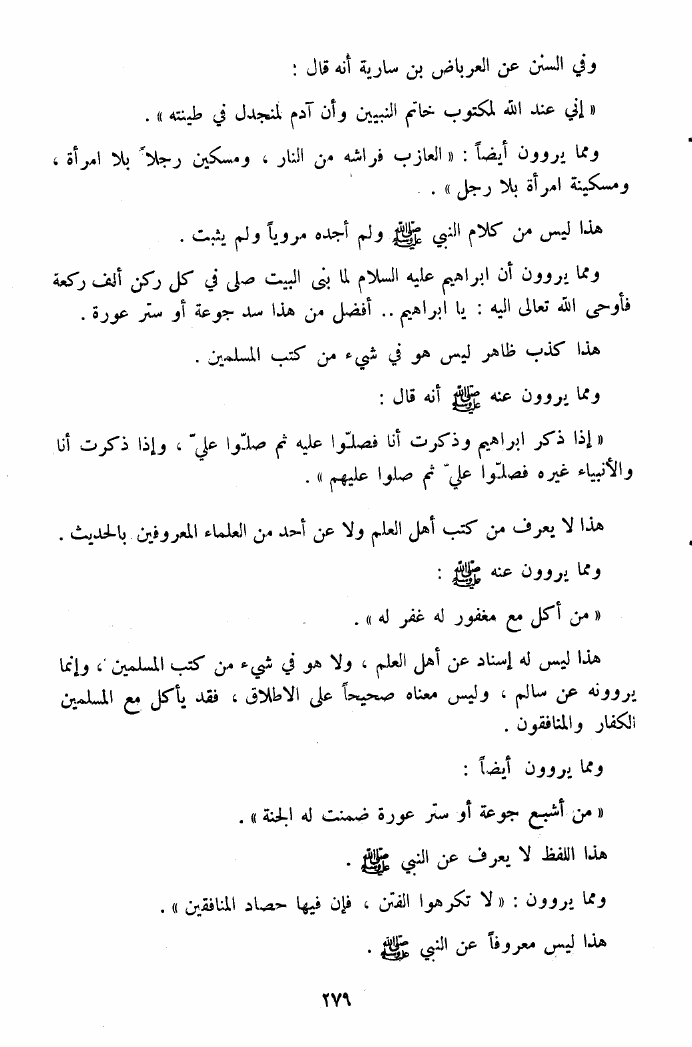 وفي السنن عن العرباض بن سارية أنه قال :
« إني عند الله لمكتوب خاتم النبيين وأن آدم لمنجدل في طينته » .
ومما يروون أيضاً : « العازب فراشه من النار ، ومسكين رجلاً بلا امرأة ،
ومسكينة امرأة بلا رجل » .
هذا ليس من كلام النبي ﷺ ولم أجده مروياً ولم يثبت .
ومما يروون أن ابراهيم عليه السلام لما بنى البيت صلى في كل ركن ألف ركعة
فأوحى الله تعالى اليه : يا ابراهيم .. أفضل من هذا سد جوعة أو ستر عورة .
هذا كذب ظاهر ليس هو في شيء من كتب المسلمين .
ومما يروون عنه ﷺ أنه قال :
« إذا ذكر ابراهيم وذكرت أنا فصلّوا عليه ثم صلّوا عليّ ، وإذا ذكرت أنا
والأنبياء غيره فصلّوا عليّ ثم صلوا عليهم » .
هذا لا يعرف من كتب أهل العلم ولا عن أحد من العلماء المعروفين بالحديث .
ومما يروون عنه ﷺ :
« من أكل مع مغفور له غفر له » .
هذا ليس له إسناد عن أهل العلم ، ولا هو في شيء من كتب المسلمين ، وإنما
يروونه عن سالم ، وليس معناه صحيحاً على الاطلاق ، فقد يأكل مع المسلمين
الكفار والمنافقون .
ومما يروون أيضاً :
« من أشبع جوعة أو ستر عورة ضمنت له الجنة » .
هذا اللفظ لا يعرف عن النبي ﷺ .
ومما يروون : « لا تكرهوا الفتن ، فإن فيها حصاد المنافقين » .
هذا ليس معروفاً عن النبي ﷺ .
٢٧٩